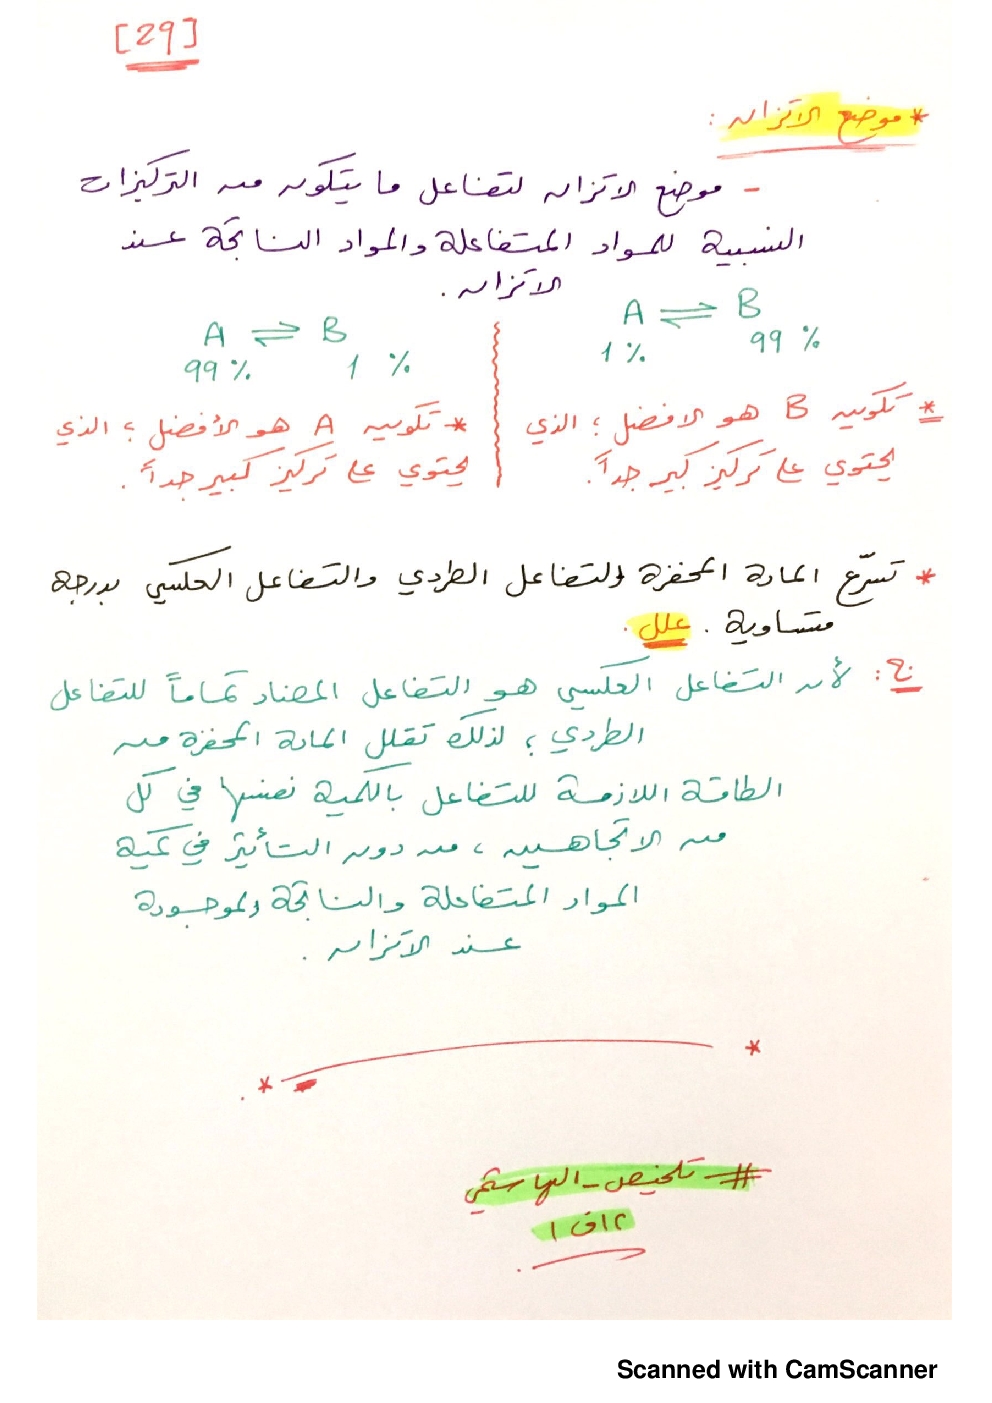 [29]
* موضع الاتزان :
- موضع الاتزان لتفاعل ما يتكون من التركيزات
النسبية للمواد المتفاعلة والمواد الناتجة عند
الاتزان .
A ⇌ B
1 % 99 %
* تكوين B هو الافضل ؛ الذي
يحتوي على تركيز كبير جداً .
A ⇌ B
99 % 1 %
* تكوين A هو الأفضل ؛ الذي
يحتوي على تركيز كبير جداً .
* تسرّع المادة المحفزة التفاعل الطردي والتفاعل العكسي بدرجة
متساوية . علل .
ج : لأن التفاعل العكسي هو التفاعل المضاد تماماً للتفاعل
الطردي ؛ لذلك تقلل المادة المحفزة من
الطاقة اللازمة للتفاعل بالكمية نفسها في كل
من الاتجاهين ، من دون التأثير في كمية
المواد المتفاعلة والناتجة الموجودة
عند الاتزان .
# تلخيص_الهاشمي
١٢ف١
Scanned with CamScanner